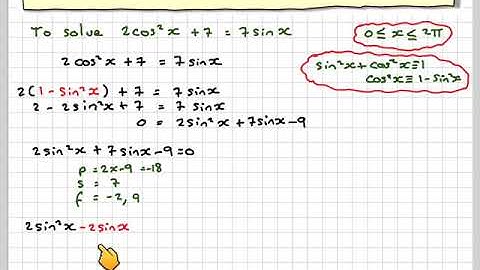 To solve 2cos²x + 7 = 7sinx
0 ≤ x ≤ 2π
2cos²x + 7 = 7sinx
sin²x + cos²x ≡ 1
cos²x ≡ 1 - sin²x
2(1 - sin²x) + 7 = 7sinx
2 - 2sin²x + 7 = 7sinx
0 = 2sin²x + 7sinx - 9
2sin²x + 7sinx - 9 = 0
P = 2x-9 = -18
S = 7
f = -2, 9
2sin²x - 2sinx